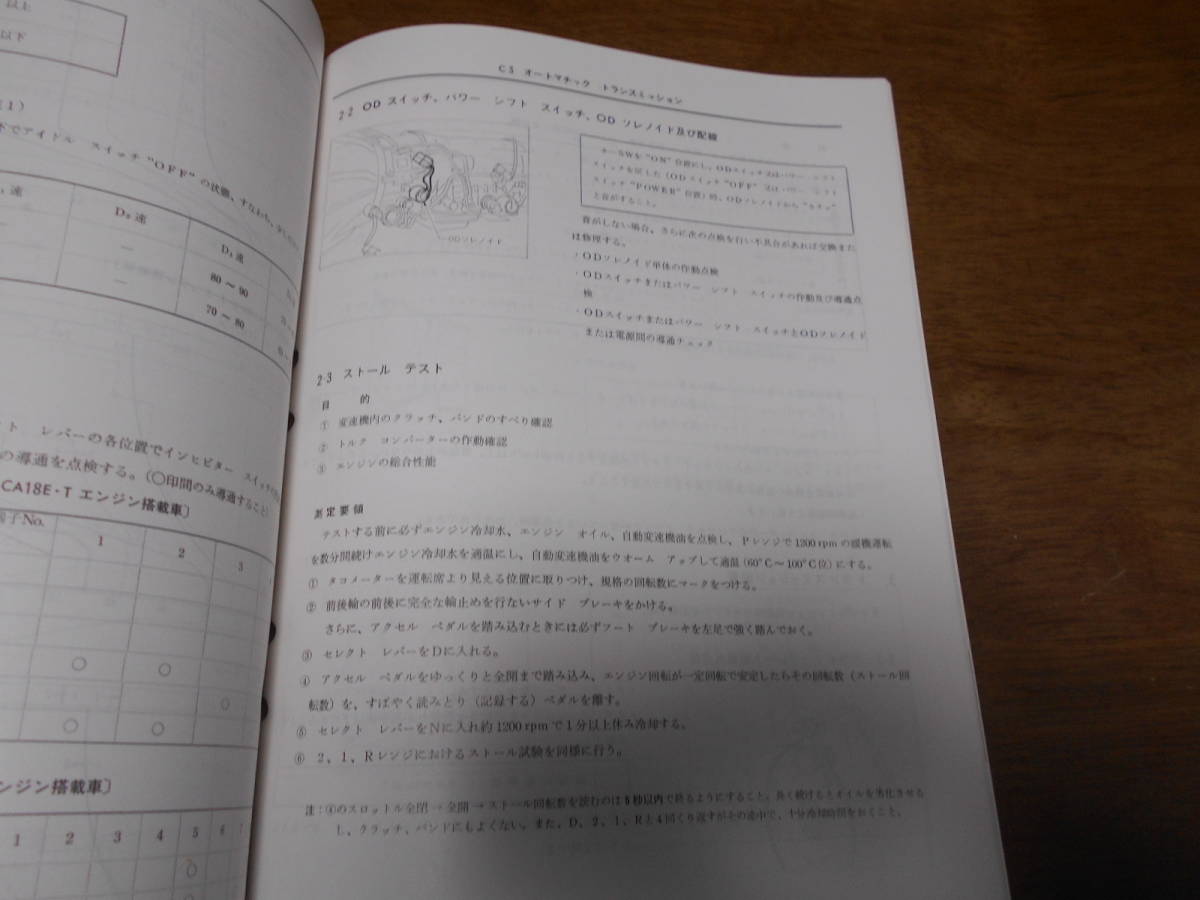 以上
以下
でアイドル スイッチ“OFF”の状態、すなわち、
速
D₂速
D₁速
80～90
70～80
ト レバーの各位置でインヒビター スイッチ
の導通を点検する。(○印間のみ導通すること)
CA18E・T エンジン搭載車〕
端子No.
1 2 3
○ ○
○
○ ○
ンジン搭載車〕
1 2 3 4 5 6
○
C5 オートマチック トランスミッション
2-2 OD スイッチ、パワー シフト スイッチ、OD ソレノイド及び配線
ODソレノイド
キーSWを“ON”位置にし、ODスイッチ又はパワー シフト
スイッチを戻した(ODスイッチ“OFF”又はパワー シフト
スイッチ“POWER”位置)時、ODソレノイドから“カチッ”
と音がすること。
音がしない場合、さらに次の点検を行い不具合があれば交換また
は修理する。
・ODソレノイド単体の作動点検
・ODスイッチまたはパワー シフト スイッチの作動及び導通点
検
・ODスイッチまたはパワー シフト スイッチとODソレノイド
または電源間の導通チェック
2-3 ストール テスト
目 的
① 変速機内のクラッチ、バンドのすべり確認
② トルク コンバーターの作動確認
③ エンジンの総合性能
測定要領
テストする前に必ずエンジン冷却水、エンジン オイル、自動変速機油を点検し、Pレンジで1200rpmの暖機運転
を数分間続けエンジン冷却水を適温にし、自動変速機油をウオーム アップして適温(60°C～100°C位)にする。
① タコメーターを運転席より見える位置に取りつけ、規格の回転数にマークをつける。
② 前後輪の前後に完全な輪止めを行ないサイド ブレーキをかける。
さらに、アクセル ペダルを踏み込むときには必ずフート ブレーキを左足で強く踏んでおく。
③ セレクト レバーをDに入れる。
④ アクセル ペダルをゆっくりと全開まで踏み込み、エンジン回転が一定回転で安定したらその回転数(ストール回
転数)を、すばやく読みとり(記録する)ペダルを離す。
⑤ セレクト レバーをNに入れ約1200rpmで1分以上休み冷却する。
⑥ 2、1、Rレンジにおけるストール試験を同様に行う。
注:④のスロットル全閉→全開→ストール回転数を読むのは5秒以内で終るようにすること。長く続けるとオイルを劣化させる
し、クラッチ、バンドにもよくない。また、D、2、1、Rと4回くり返すがその途中で、十分冷却時間をおくこと。